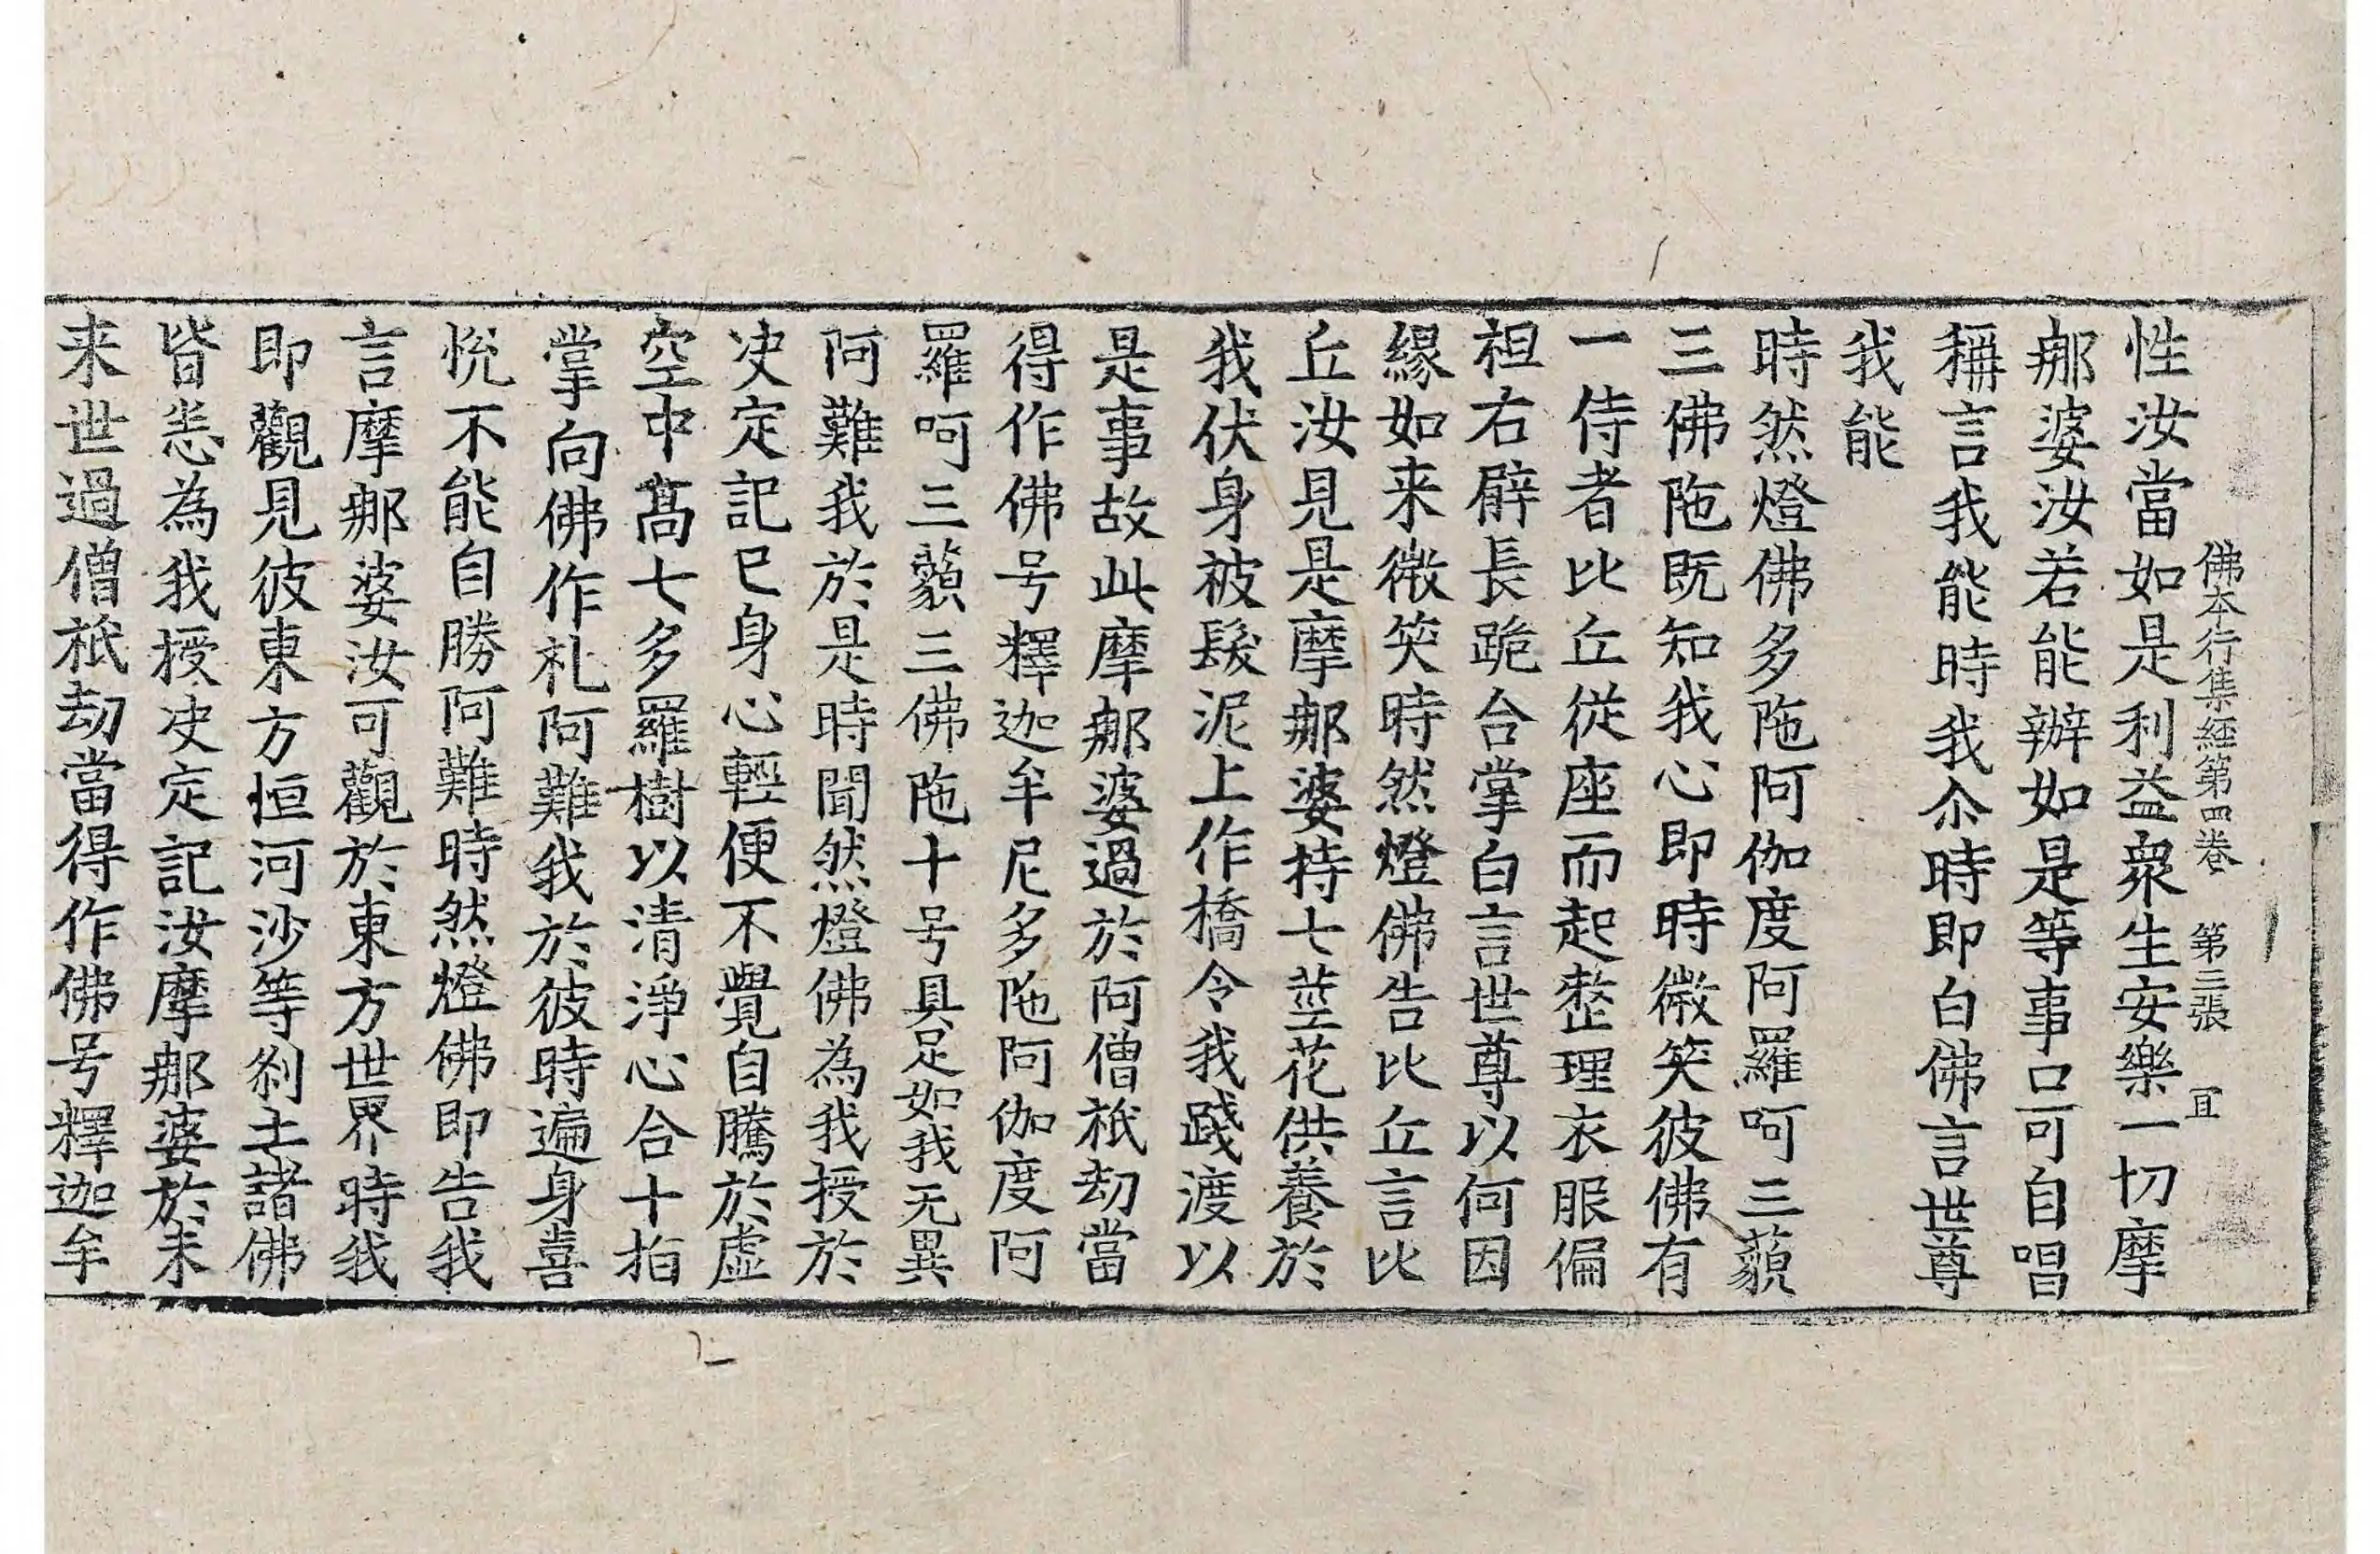 佛本行集經第四卷　第三張　宜
性汝當如是利益衆生安樂一切摩
那婆汝若能辦如是等事口可自唱
稱言我能時我尒時即白佛言世尊
我能
時然燈佛多陁阿伽度阿羅呵三藐
三佛陁既知我心即時微笑彼佛有
一侍者比丘從座而起整理衣服偏
袒右臂長跪合掌白言世尊以何因
緣如来微笑時然燈佛告比丘言比
丘汝見是摩那婆持七莖花供養於
我伏身被髮泥上作橋令我踐渡以
是事故此摩那婆過於阿僧祇劫當
得作佛号釋迦牟尼多陁阿伽度阿
羅呵三藐三佛陁十号具足如我无異
阿難我於是時聞然燈佛為我授於
决定記已身心輕便不覺自騰於虛
空中高七多羅樹以清淨心合十指
掌向佛作礼阿難我於彼時遍身喜
悅不能自勝阿難時然燈佛即告我
言摩那婆汝可觀於東方世界時我
即觀見彼東方恒河沙等刹土諸佛
皆悉為我授决定記汝摩那婆於未
来世過僧祇劫當得作佛号釋迦牟